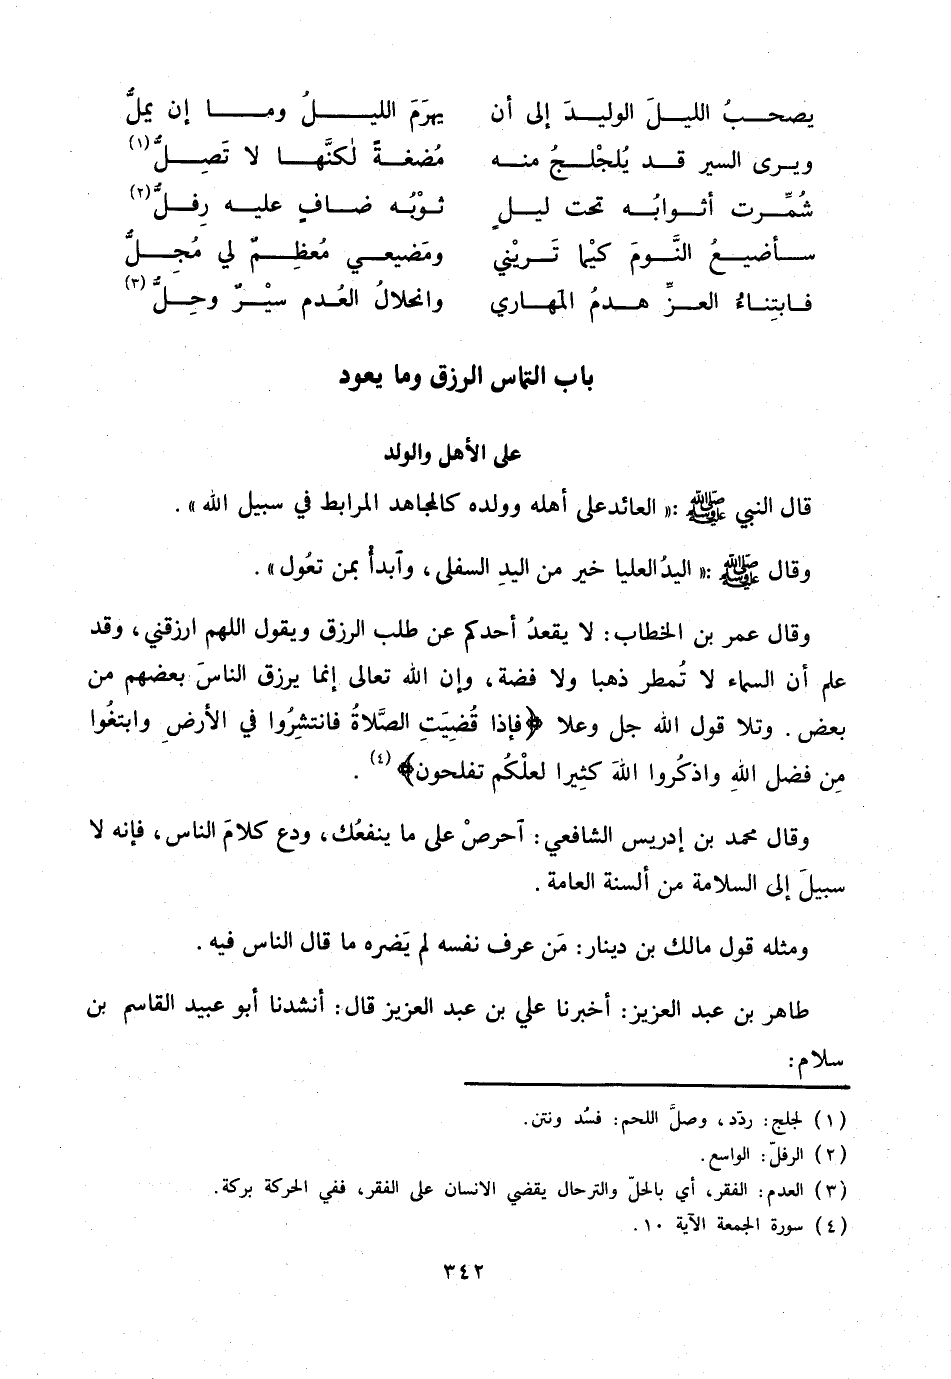 يصحبُ الليلَ الوليدَ إلى أن يهرَمَ الليلُ وما إن يملُّ
ويرى السير قد يُلجْلجُ منه مُضغةً لكنَّها لا تَصِلُّ (١)
شُمِّرت أثوابُه تحت ليلٍ ثوْبُه ضافٍ عليه رِفلُّ (٢)
سأضيعُ النَّومَ كيْما تَريْني ومَضيعي مُعظِمٌ لي مُجِلُّ
فابتِناءُ العزِّ هدمُ المَهاري وانحلالُ العُدم سيْرٌ وحِلُّ (٣)
باب التماس الرزق وما يعود
على الأهل والولد
قال النبي ﷺ :« العائدعلى أهله وولده كالمجاهد المرابط في سبيل الله » .
وقال ﷺ :« اليدُالعليا خير من اليدِ السفلى ، وآبدأْ بمن تعُول » .
وقال عمر بن الخطاب : لا يقعدُ أحدكم عن طلب الرزق ويقول اللهم ارزقني ، وقد
علم أن السماء لا تُمطر ذهبا ولا فضة ، وإن الله تعالى إنما يرزق الناسَ بعضهم من
بعض . وتلا قول الله جل وعلا ﴿فإذا قُضِيَتِ الصَّلاةُ فانتشِرُوا في الأرضِ وابتغُوا
مِن فضل اللهِ واذكُروا اللهَ كثِيرا لعلْكُم تفلحون﴾ (٤) .
وقال محمد بن إدريس الشافعي : آحرصْ على ما ينفعُك ، ودع كلامَ الناس ، فإنه لا
سبيلَ إلى السلامة من ألسنة العامة .
ومثله قول مالك بن دينار : مَن عرف نفسه لم يَضره ما قال الناس فيه .
طاهر بن عبد العزيز : أخبرنا علي بن عبد العزيز قال : أنشدنا أبو عبيد القاسم بن
سلام :
(١) لجلج : ردّد ، وصلَّ اللحم : فسُد ونتن .
(٢) الرفلّ : الواسع .
(٣) العدم : الفقر ، أي بالحلّ والترحال يقضي الانسان على الفقر ، ففي الحركة بركة .
(٤) سورة الجمعة الآية ١٠ .
٣٤٢